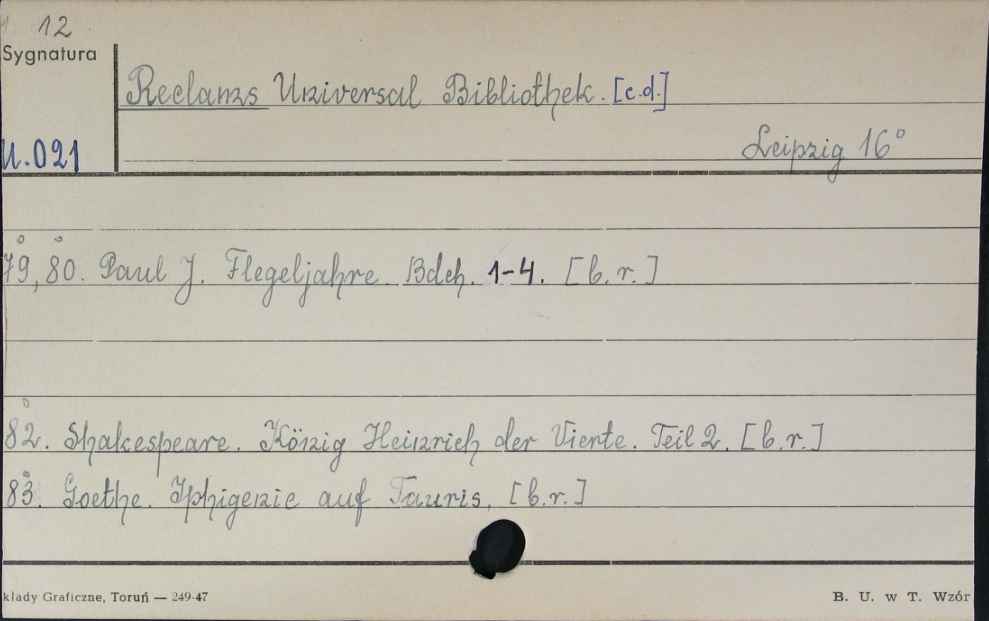 12
Sygnatura
Reclams Universal Bibliothek. [c.d.]
U.021
Leipzig 16°
79, 80. Paul J. Flegeljahre. Bdch. 1-4. [b.r.]
82. Shakespeare. König Heinrich der Vierte. Teil 2. [b.r.]
83. Goethe. Iphigenie auf Tauris. [b.r.]
kłady Graficzne, Toruń — 249-47
B. U. w T. Wzór